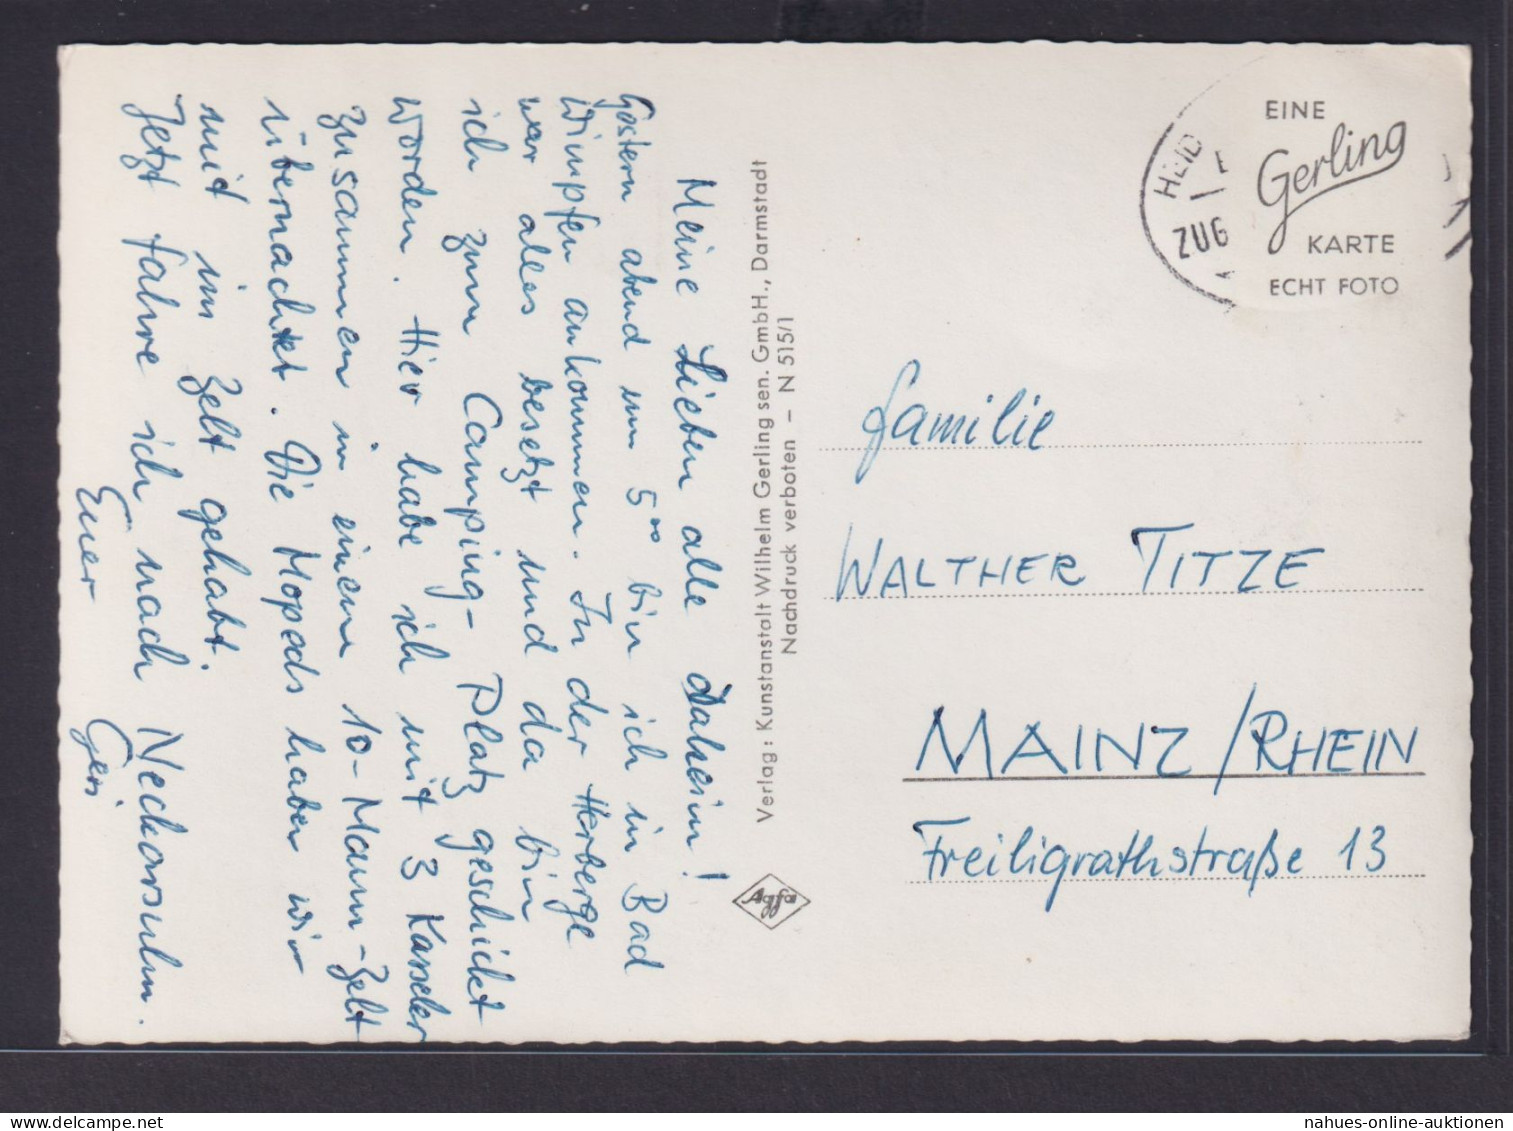 Meine Lieben alle daheim!
Gestern abend um 5⁰⁰ bin ich in Bad
Wimpfen ankommen. In der Herberge
war alles besetzt und da bin
ich zum Camping-Platz geschickt
worden. Hier habe ich mit 3 Kasseler
zusammen in einem 10-Mann-Zelt
übernachtet. Die Mopeds haben wir
mit im Zelt gehabt.
Jetzt fahre ich nach Neckarsulm.
Euer
Verlag: Kunstanstalt Wilhelm Gerling sen. GmbH., Darmstadt
Nachdruck verboten – N 515/1
Agfa
HEID
ZUG
EINE
Gerling
KARTE
ECHT FOTO
Familie
WALTHER TITZE
MAINZ/RHEIN
Freiligrathstraße 13
nahues-online-auktionen